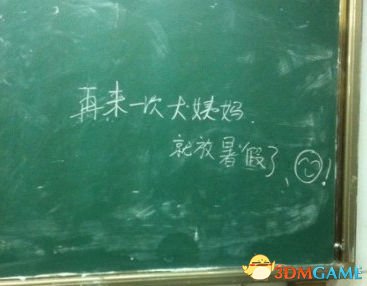 再来一次大姨妈.
就放暑假了、☺!
3DMGAME